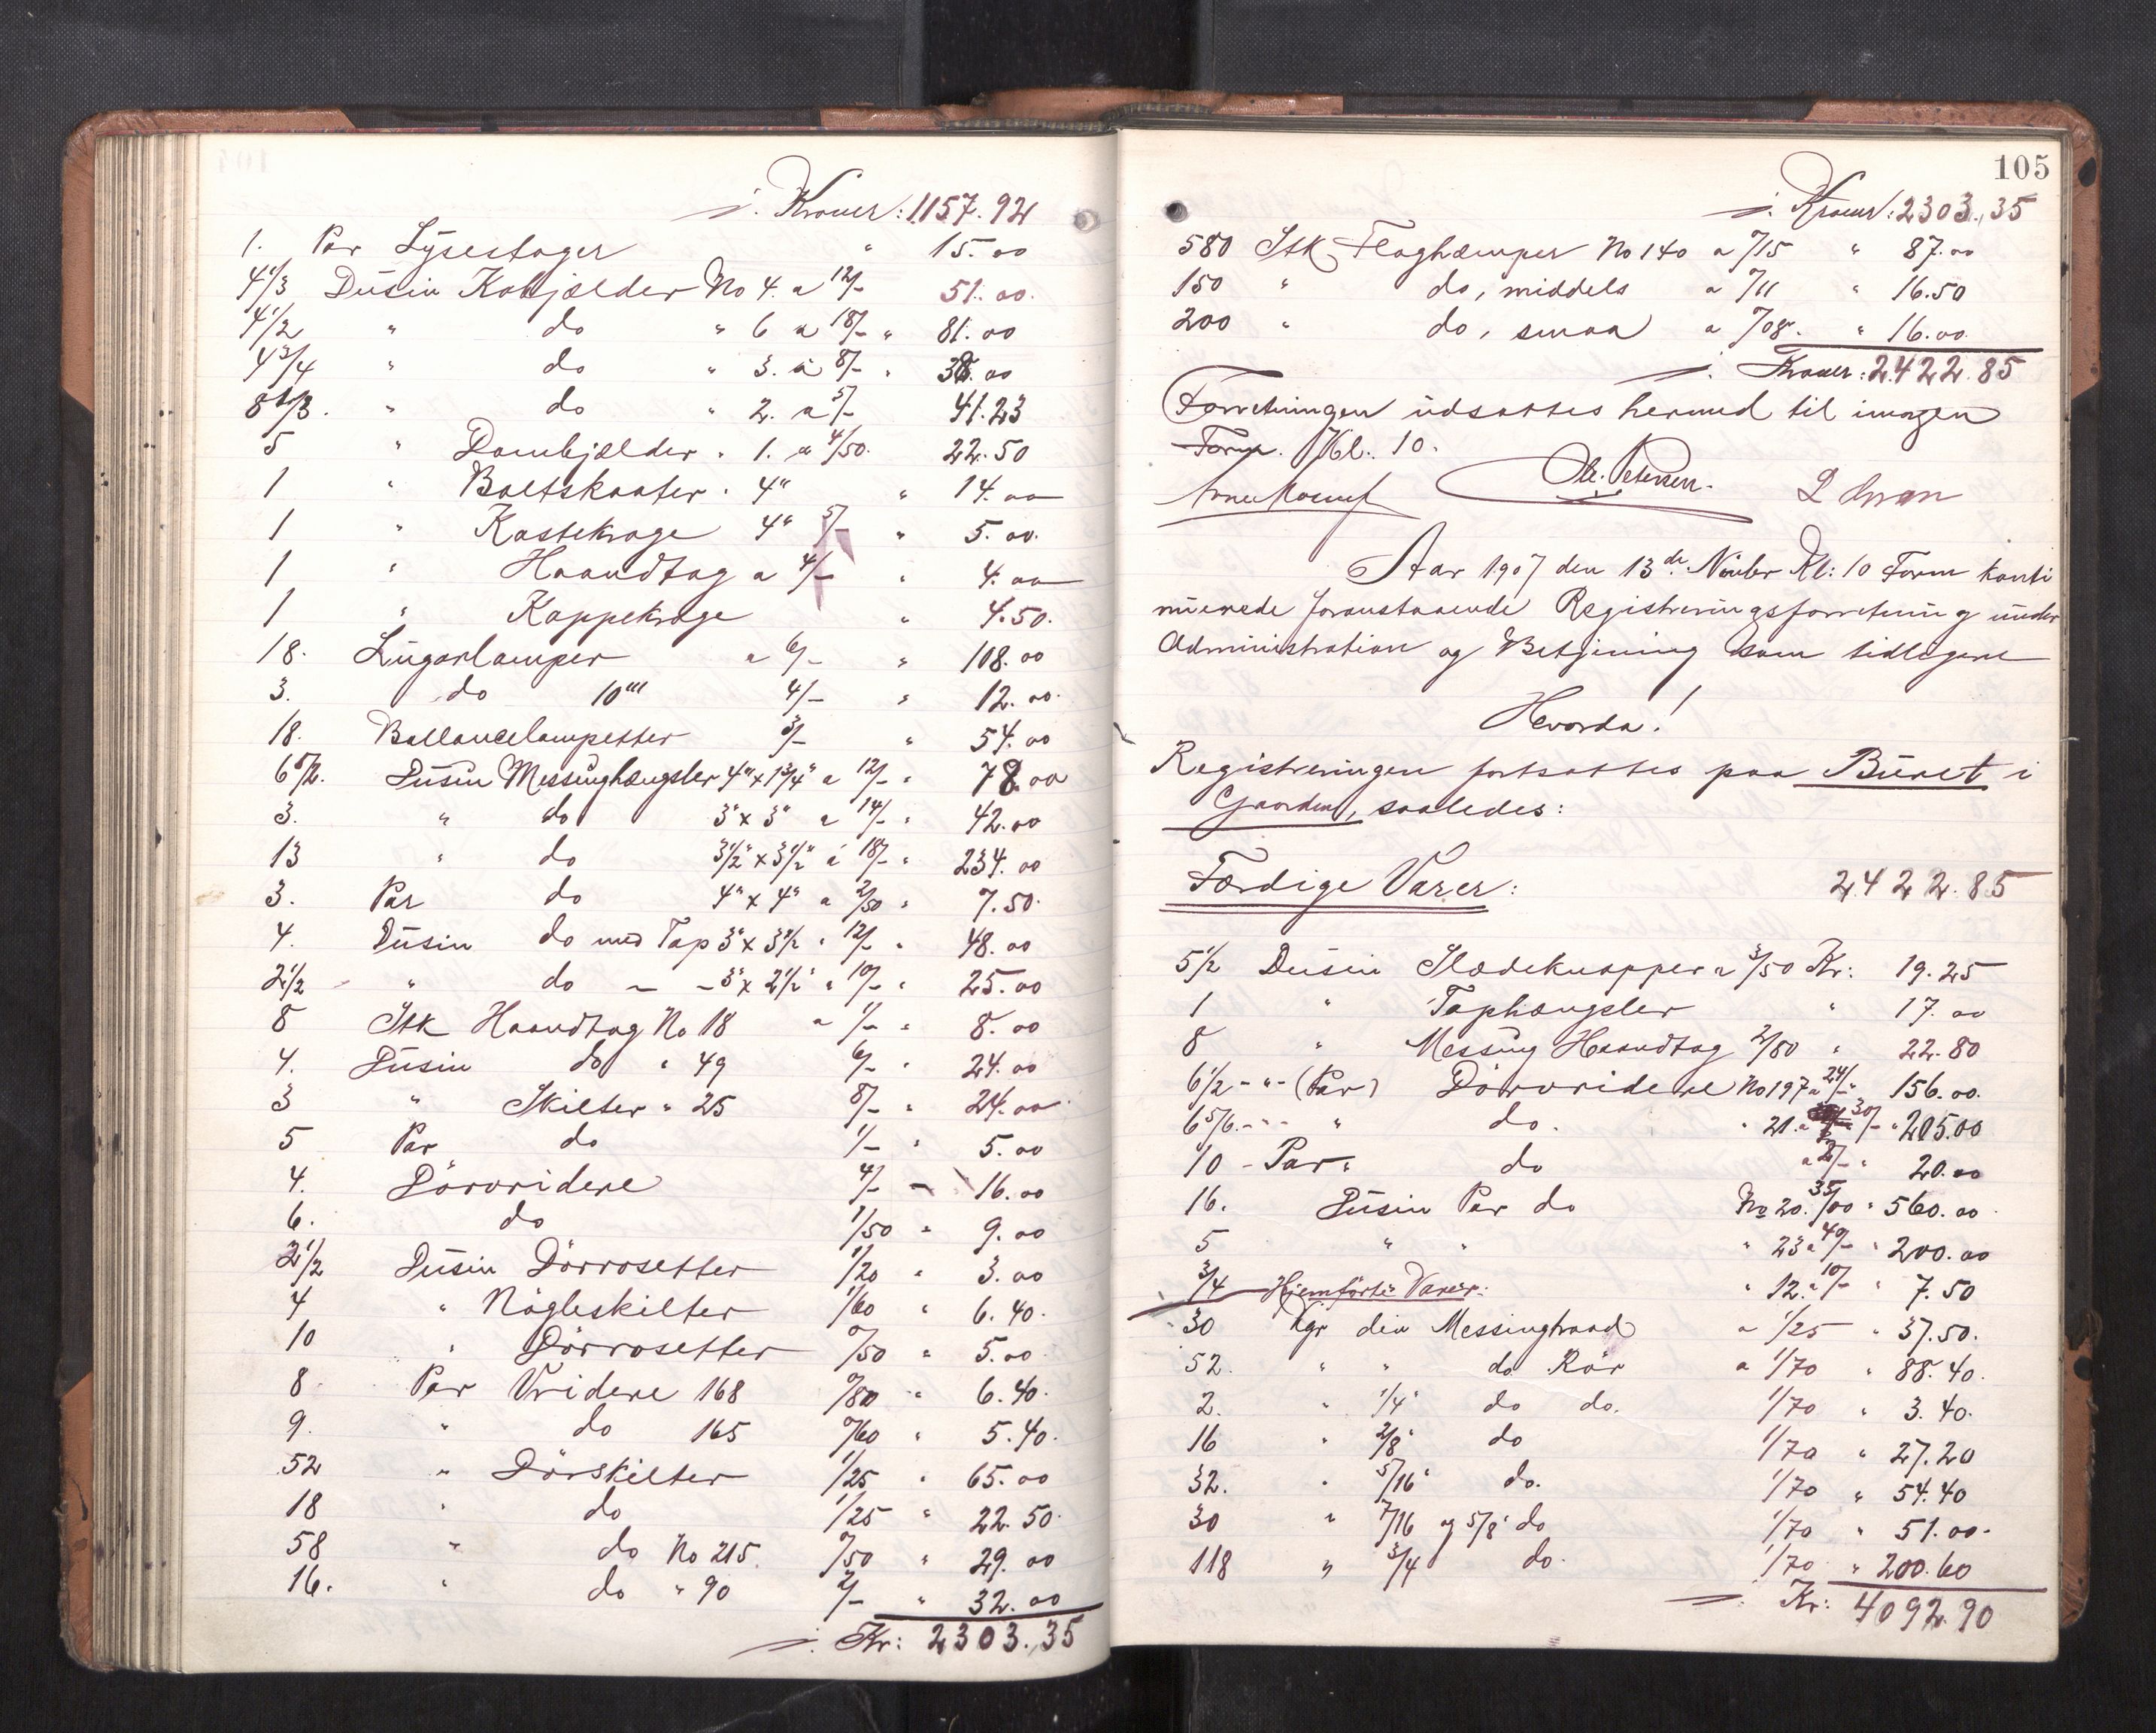 ÷. Kroner: 1157.92
1. Par Lysestager " 15.00
4 1/3 Dusin Kobjælder No 4. a 12/- 51.00.
4 1/2 " do " 6 a 18/- " 81.00
4 3/4 " do " 3. a 8/- " 38.00
8 1/3. " do " 2. a 5/- 41.23
5 " Dombjælder " 1. a 4/50. 22.50
1 " Baltskaater " 4" " 14.00
1 " Kastekroge 4" 5/- " 5.00.
1 " Haandtag a 4/- " 4.00
1 " Kappekroge " 4.50.
18. Lugarlamper a 6/- " 108.00
3. do 10''' 4/- " 12.00.
18. Ballancelampetter 3/- " 54.00
6 1/2. Dusin Messinghængsler 4"x1 3/4" a 12/- " 78.00
3. " do 3"x3" a 14/- " 42.00
13 " do 3 1/2"x3 1/2" a 18/- " 234.00
3. Par do 4"x4" a 2/50 " 7.50.
4. Dusin do med Tap 3"x3 1/2 " 12/- " 48.00
2 1/2 " do - - 3"x2 1/2" " 10/- " 25.00
8 Stk Haandtag No 18 a 1/- " 8.00
4. Dusin do " 49 6/- " 24.00
3 " Skilter " 25 8/- " 24.00
5 Par do 1/- " 5.00
4. Dörvridere 4/- - 16.00
6. do 1/50 " 9.00
2 1/2 Dusin Dörrosetter 1/20 " 3.00
4 " Nögleskilter 1/60 " 6.40.
10 " Dörrosetter 0/50 " 5.00
8 Par Vridere 168 0/80 " 6.40.
9. " do 165 0/60 " 5.40.
52 " Dörskilter 1/25 " 65.00
18 " do 1/25 " 22.50.
58 " do No 215. 0/50 " 29.00
16. " do " 90 2/- " 32.00
÷. Kr: 2303.35
105
÷. Kroner: 2303.35
580 Stk Flaghæmper No 140 a 0/15 " 87.00
150 " do, middels a 0/11 " 16.50
200 " do, smaa a 0/08. " 16.00.
÷. Kroner: 2422.85
Forretningen udsattes hermed til imorgen
Form. Kl. 10.
Ole Petersen.
Aar 1907 den 13de Novbr Kl: 10 Form konti
nuerede foranstaaende Registreringsforretning under
Administration og Betjening som tidligere
Hvorda!
Registreringen fortsattes paa Buret i
Gaarden, saaledes:
Færdige Varer: 2422.85
5 1/2 Dusin Slædeknapper a 3/50 Kr: 19.25
1 " Taphængsler " 17.00
8 " Messing Haandtag 2/80 " 22.80
6 1/2 - " - (Par) Dörvridere No 197 a 24/- " 156.00.
6 5/6. - - - " do. " 21. a 30/- " 205.00
10 - Par. do a 2/- " 20.00
16. Dusin Par do No 20. 35/00 " 560.00
5 " " " 23 a 40/- " 200.00
3/4 Hjemførte Varer: " 12. a 10/- " 7.50
30 Kgr div Messingtraad a 1/25 " 37.50.
52. " " do Rör a 1/70 " 88.40.
2. " 1/4" do do. 1/70 " 3.40.
16 " 2/8" do 1/70 " 27.20
32. " 5/16" do. 1/70 " 54.40
30 " 7/16 og 5/8" do 1/70 " 51.00.
118 " 3/4 do. 1/70 " 200.60
÷. Kr: 4092.90